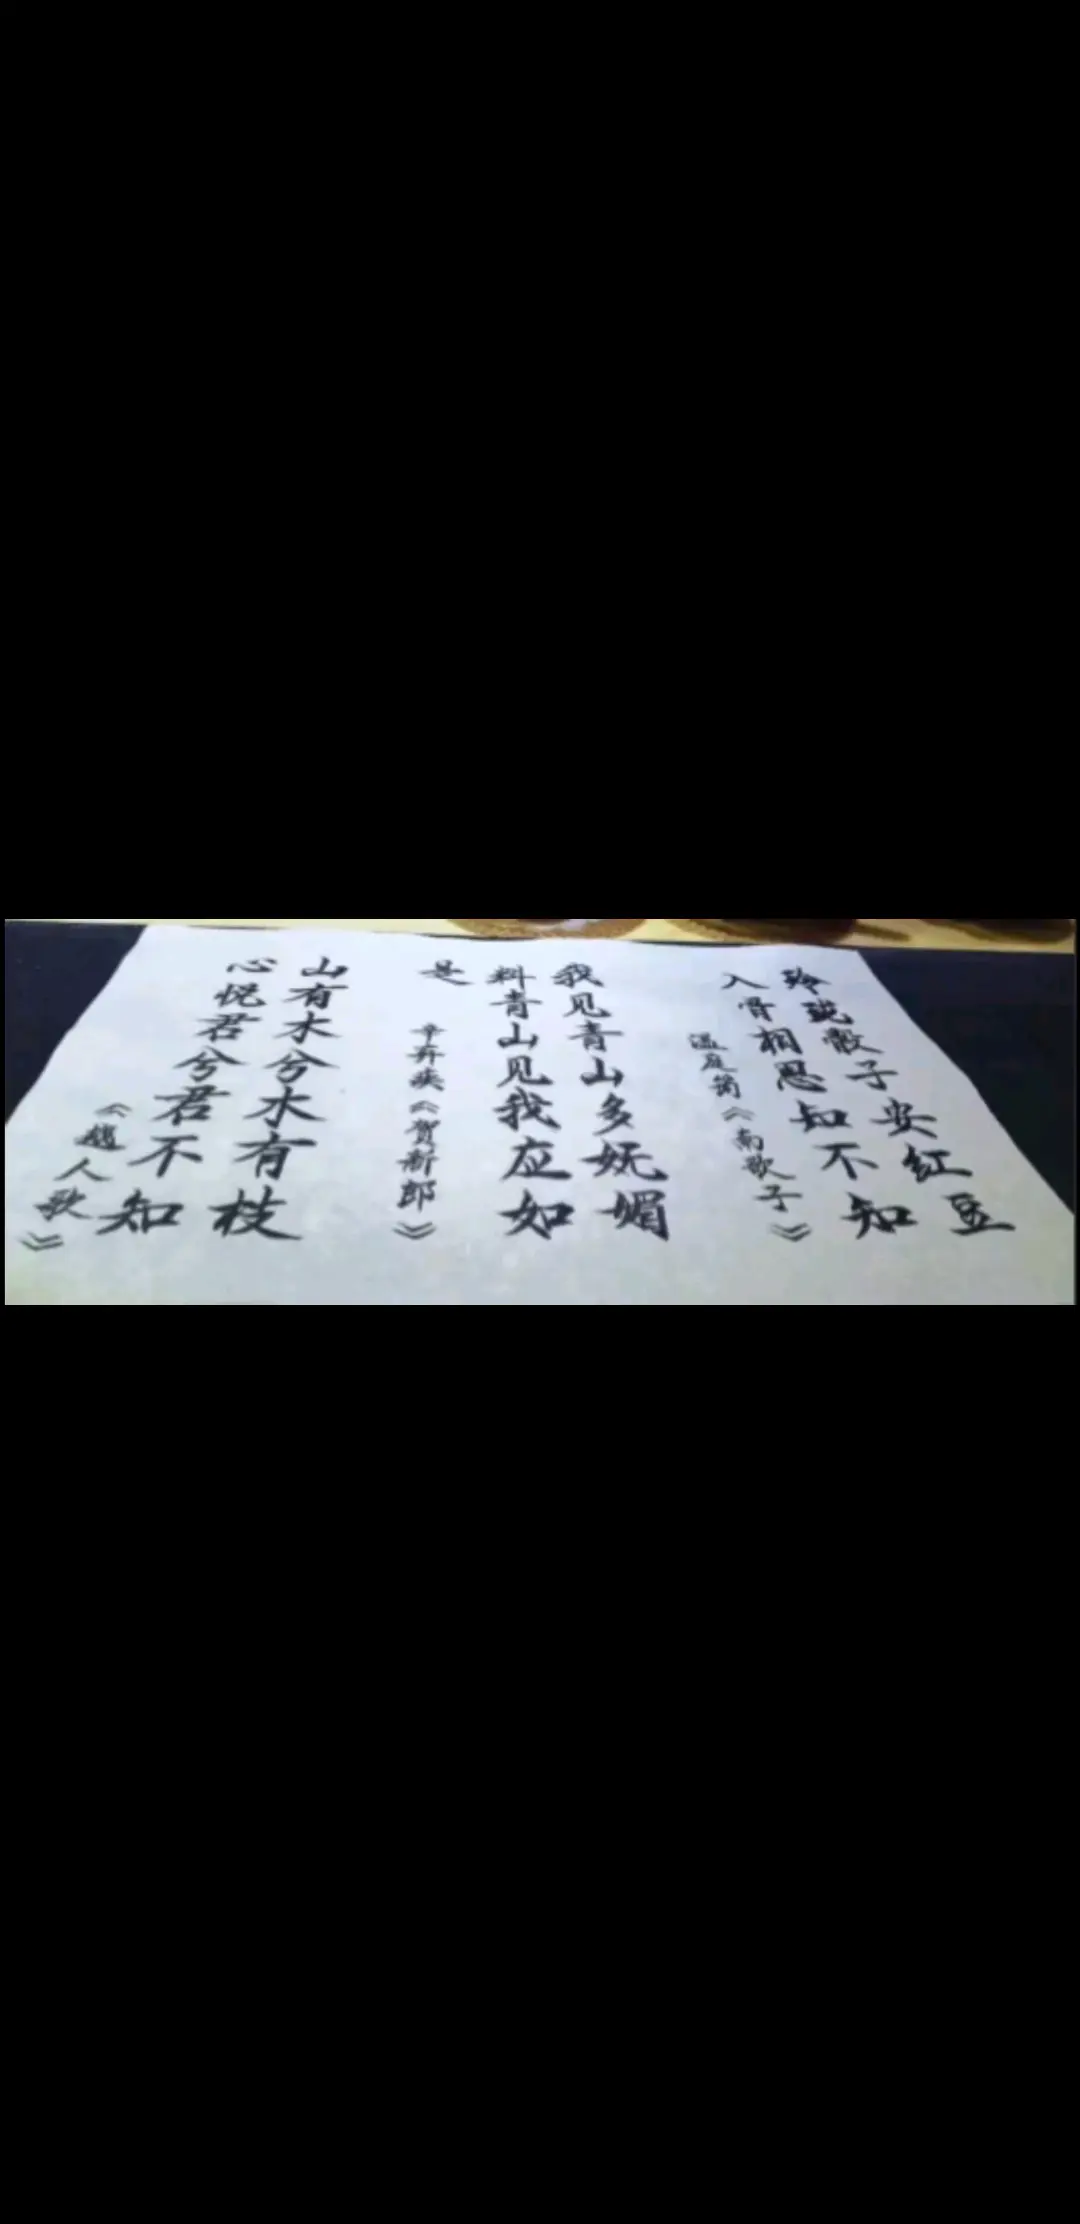 玲珑骰子安红豆
入骨相思知不知
温庭筠《南歌子》
我见青山多妩媚
料青山见我应如
是
辛弃疾《贺新郎》
山有木兮木有枝
心悦君兮君不知
《越人歌》